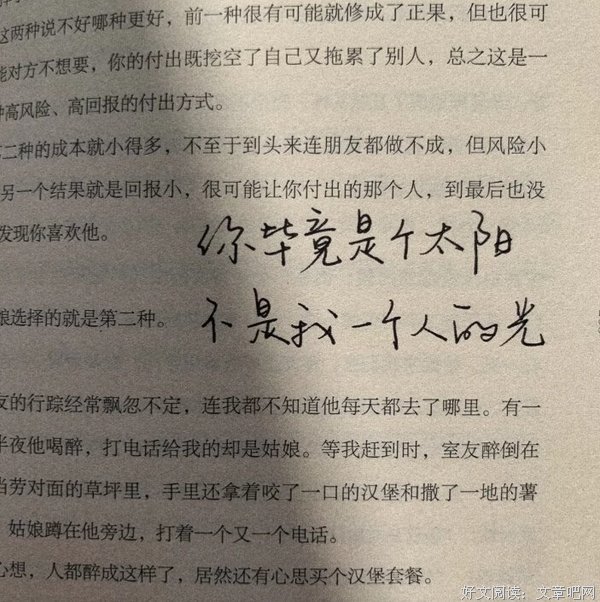 这两种说不好哪种更好，前一种很有可能就修成了正果，但也很可
能对方不想要，你的付出既挖空了自己又拖累了别人，总之这是一
种高风险、高回报的付出方式。
二种的成本就小得多，不至于到头来连朋友都做不成，但风险小
另一个结果就是回报小，很可能让你付出的那个人，到最后也没
发现你喜欢他。
你毕竟是个太阳
娘选择的就是第二种。
不是我一个人的光
友的行踪经常飘忽不定，连我都不知道他每天都去了哪里。有一
半夜他喝醉，打电话给我的却是姑娘。等我赶到时，室友醉倒在
当劳对面的草坪里，手里还拿着咬了一口的汉堡和撒了一地的薯
，姑娘蹲在他旁边，打着一个又一个电话。
心想，人都醉成这样了，居然还有心思买个汉堡套餐。
好文阅读：文章吧网